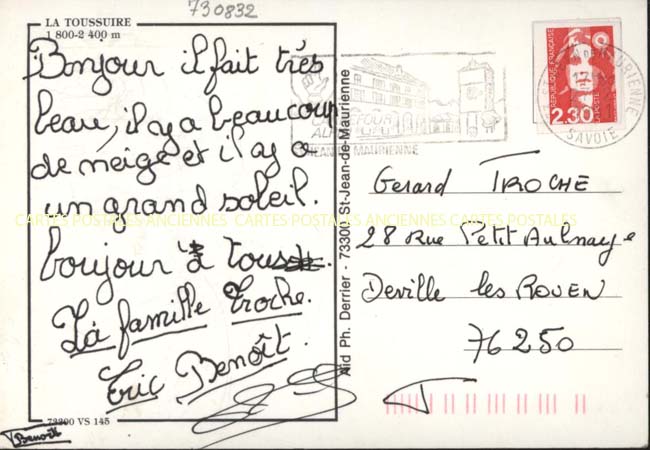 730832
LA TOUSSUIRE
1 800-2 400 m
Bonjour il fait très
beau, il y a beaucoup
de neige et il y a
un grand soleil.
boujour à tous.
La famille Troche.
Eric Benoît.
73300 VS 145
Benoît
Aid Ph. Derrier - 73300 St-Jean-de-Maurienne
CARREFOUR
JEAN DE MAURIENNE
REPUBLIQUE FRANÇAISE
2,30
LA POSTE
DE MAURIENNE
SAVOIE
Gerard TROCHE
28 Rue Petit Aulnaye
Deville les ROUEN
76250
CARTES POSTALES ANCIENNES CARTES POSTALES ANCIENNES CARTES POSTALES